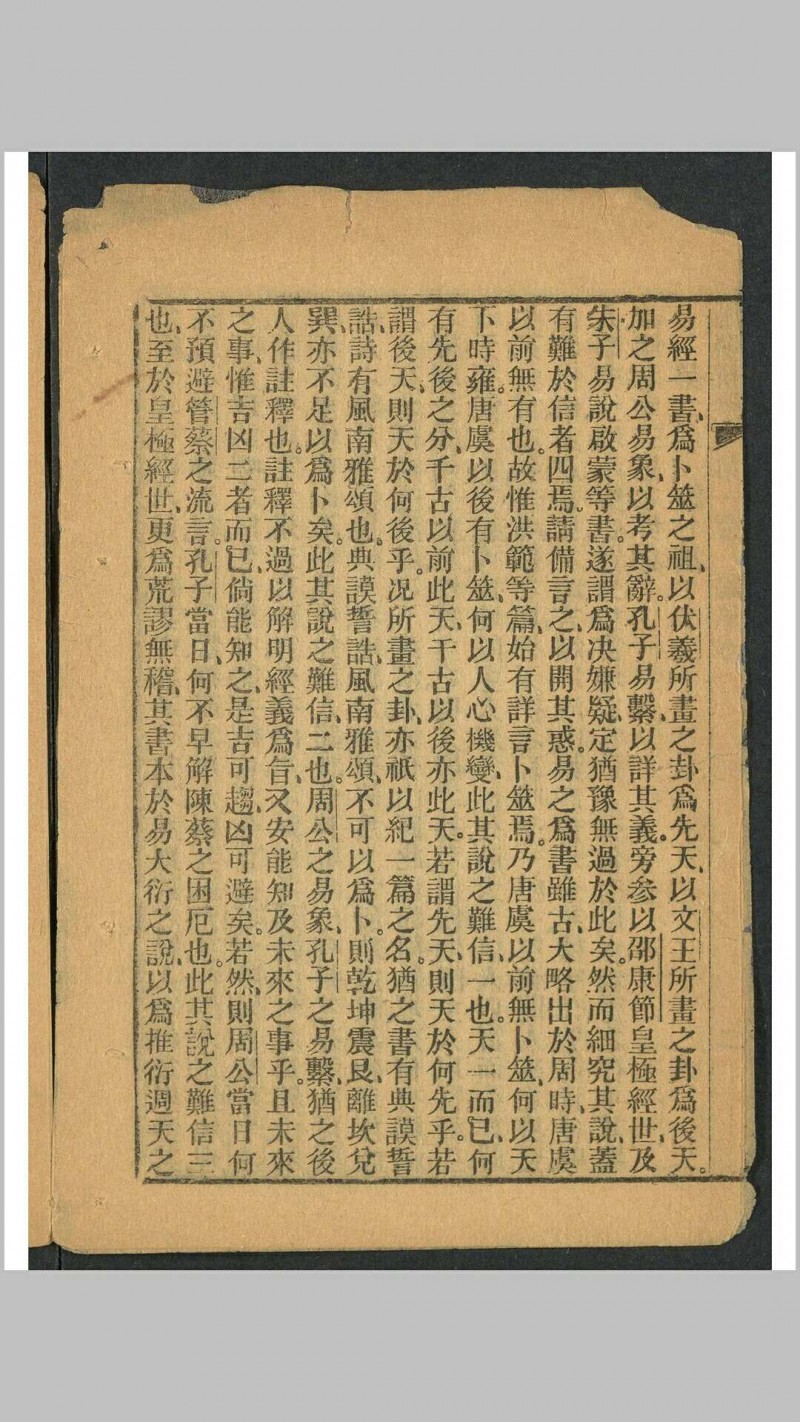 易經一書、爲卜筮之祖、以伏羲所畫之卦爲先天、以文王所畫之卦爲後天。
加之周公易象、以考其辭。孔子易繫、以詳其義。旁參以邵康節皇極經世、及
朱子易說啟蒙等書。遂謂爲决嫌疑、定猶豫無過於此矣。然而細究其說、蓋
有難於信者四焉。請備言之、以開其惑。易之爲書雖古、大略出於周時、唐虞
以前無有也。故惟洪範等篇、始有詳言卜筮焉。乃唐虞以前無卜筮、何以天
下時雍。唐虞以後有卜筮、何以人心機變、此其說之難信一也。天一而已、何
有先後之分、千古以前此天、千古以後亦此天。若謂先天、則天於何先乎。若
謂後天、則天於何後乎。况所畫之卦、亦祇以紀一篇之名。猶之書有典謨誓
誥、詩有風南雅頌也。典謨誓誥、風南雅頌、不可以爲卜。則乾坤震艮、離坎兌
巽、亦不足以爲卜矣。此其說之難信、二也。周公之易象、孔子之易繫、猶之後
人作註釋也。註釋不過以解明經義爲旨、又安能知及未來之事乎。且未來
之事、惟吉凶二者而已、倘能知之、是吉可趨、凶可避矣。若然、則周公當日何
不預避管蔡之流言。孔子當日、何不早解陳蔡之困厄也。此其說之難信三
也、至於皇極經世、更爲荒謬無稽、其書本於易大衍之說、以爲推衍週天之